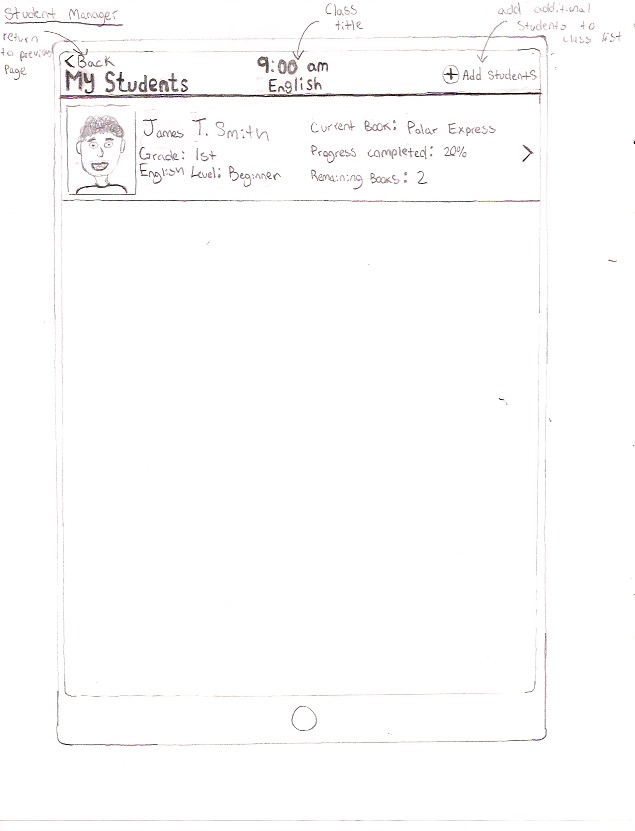 Student Manager
return
to previous
Page
Class
title
add additional
Students to
class list
< Back
My Students
9:00 am
English
+ Add Students
James T. Smith
Grade: 1st
English Level: Beginner
Current Book: Polar Express
Progress completed: 20%
Remaining Books: 2